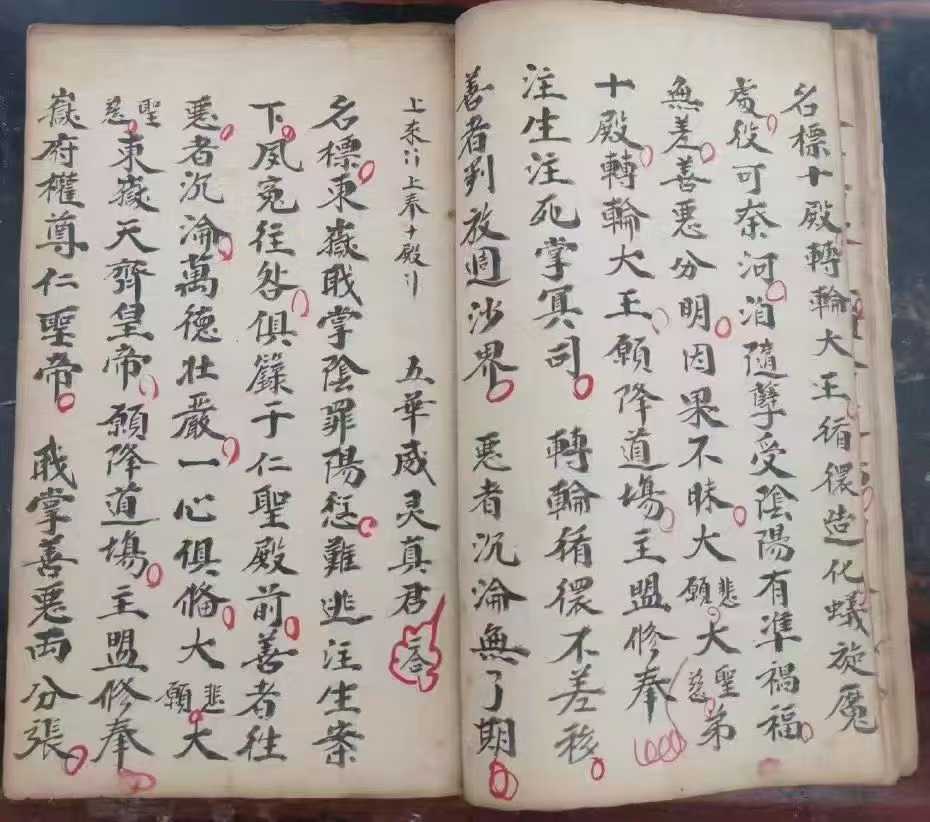 名標十殿轉輪大王循環造化蟻旋魔
處役可奈河洎隨孽受陰陽有準禍福
無差善惡分明因果不昧大悲願大聖慈第
十殿轉輪大王願降道場主盟修奉
注生注死掌冥司 轉輪循環不差移
善者判放週沙界 惡者沉淪無了期
上來 上奉十殿 五華威灵真君 答
名標東嶽職掌陰罪陽愆難逃注生案
下夙冤往咎俱籙于仁聖殿前善者往
惡者沉淪萬德壯嚴一心俱俻大悲願大
聖慈東嶽天齊皇帝願降道塲主盟修奉
嶽府權尊仁聖帝 職掌善惡両分張